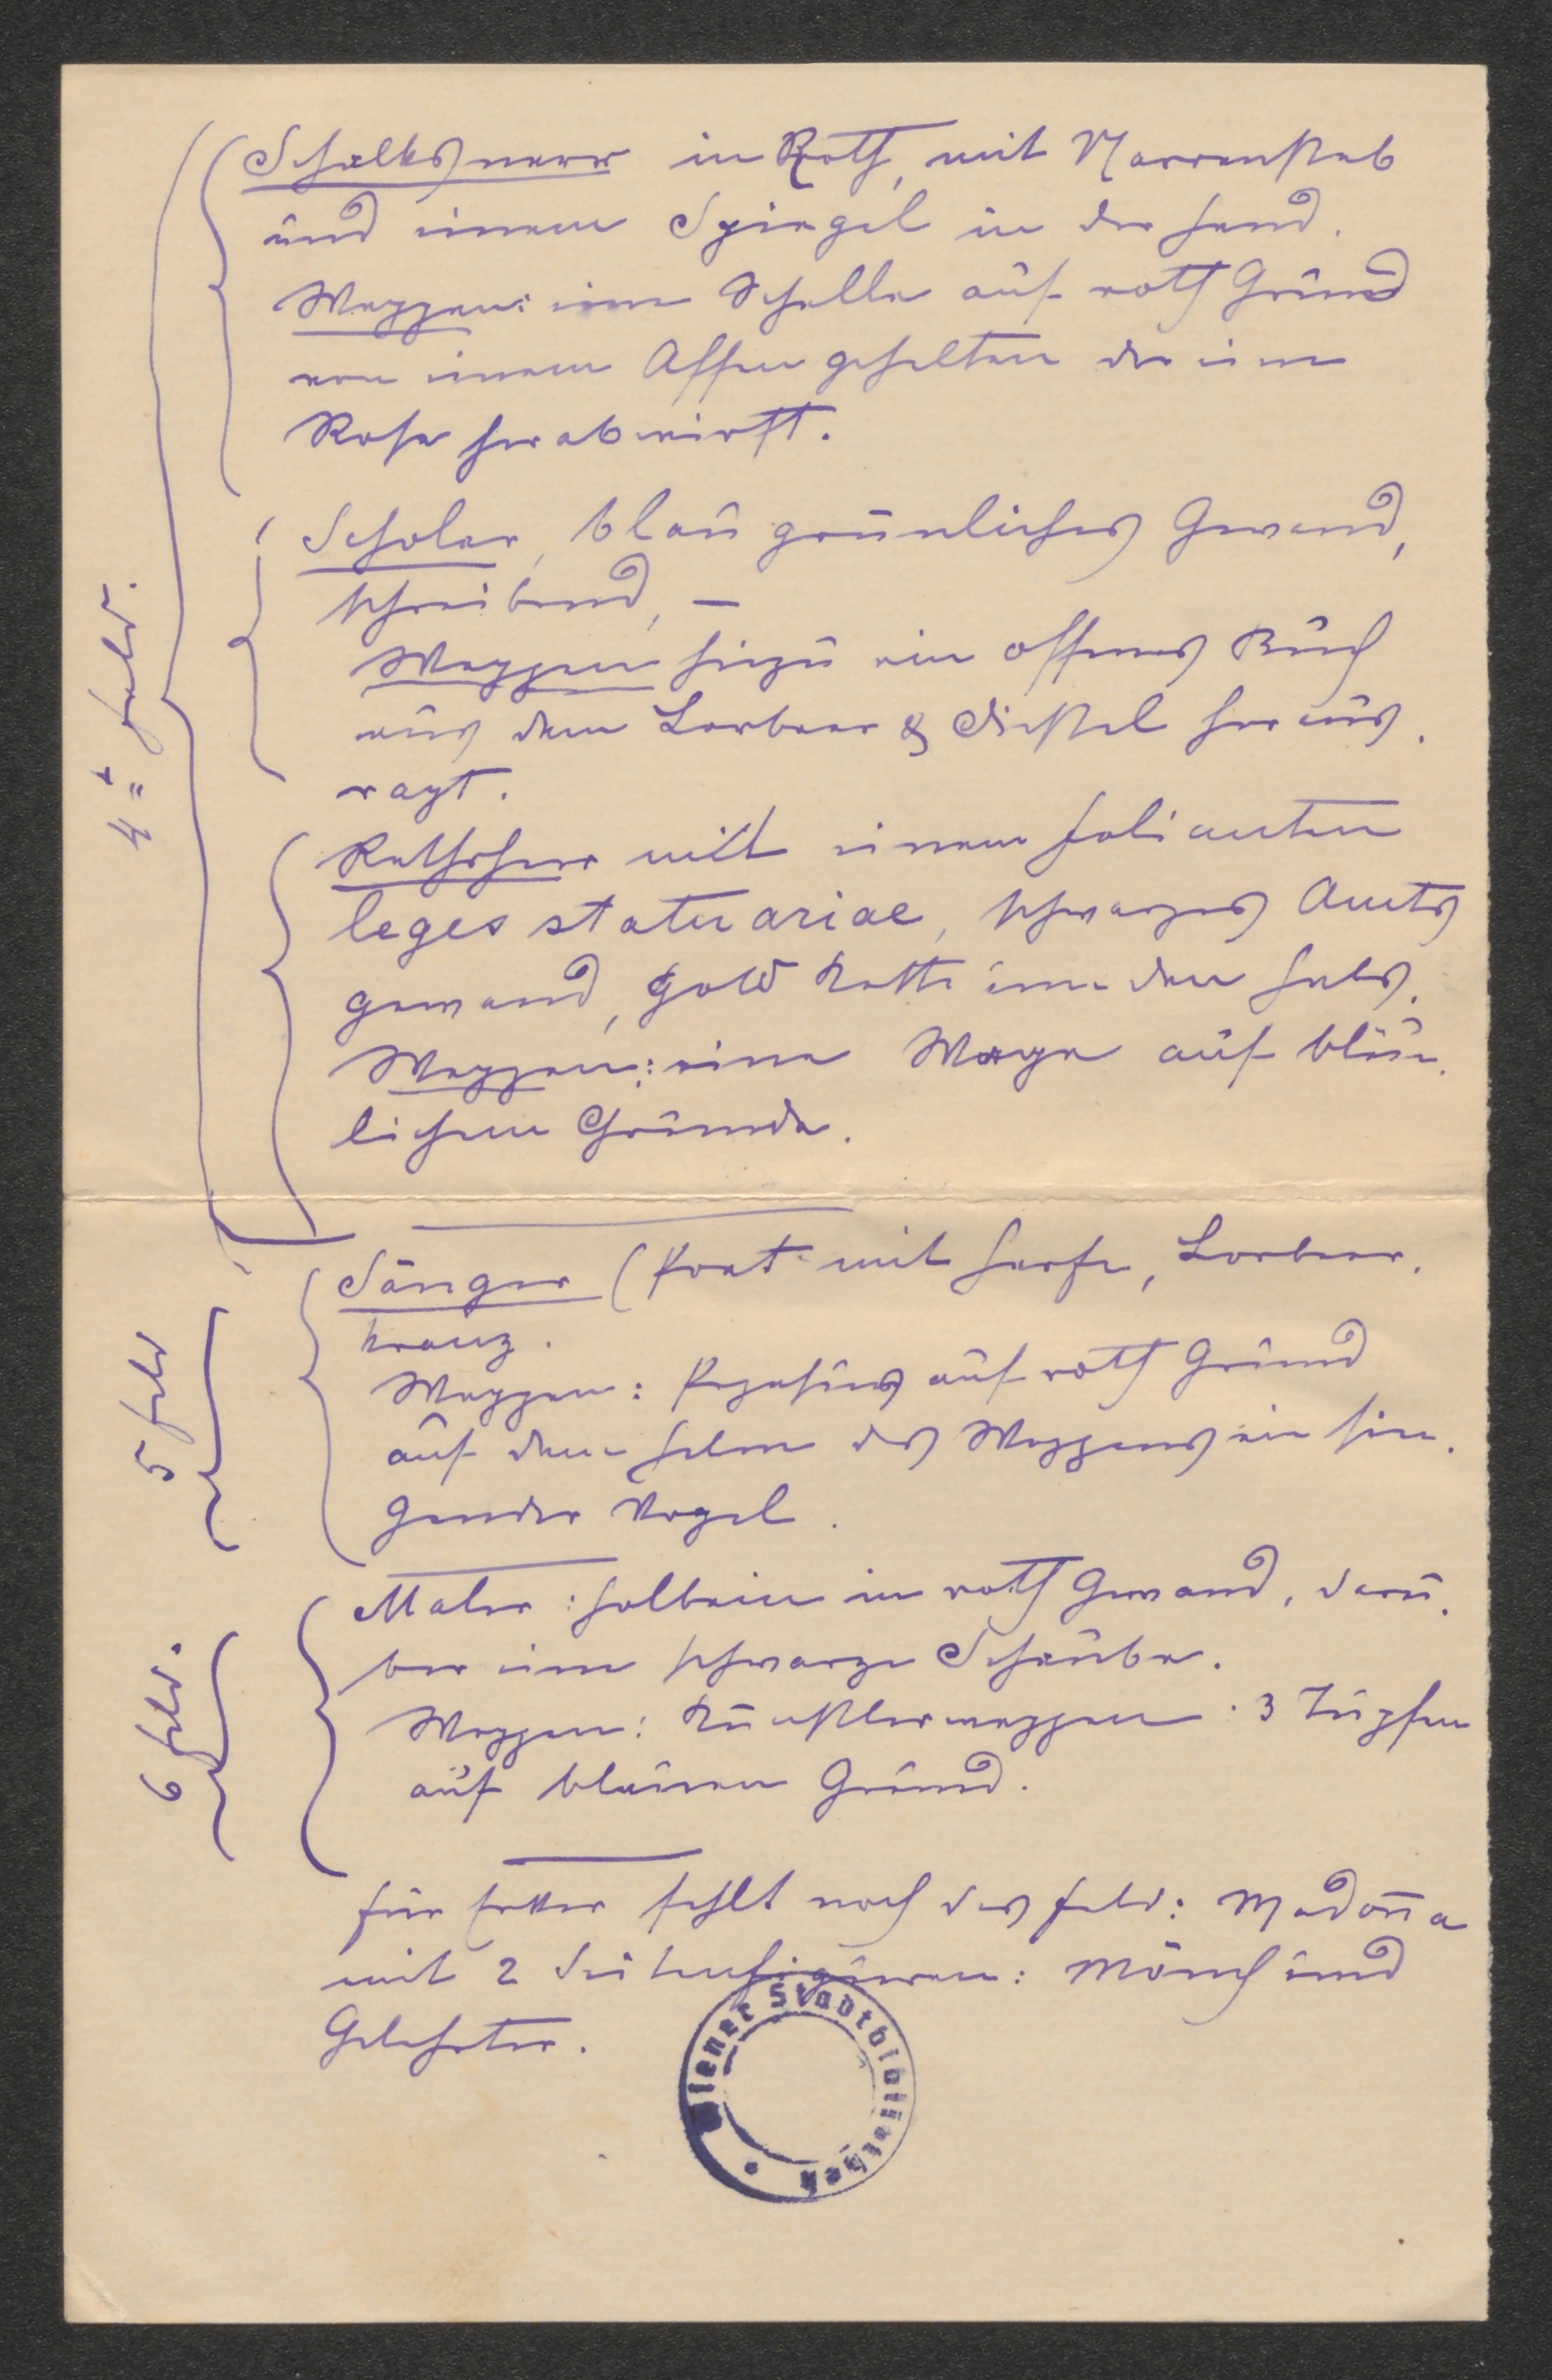 Schalksnarr in Roth, mit Narrenstab
und einem Spiegel in der Hand.
Wappen: eine Schelle auf roth Grund
von einem Affen gehalten der eine
Rose herabwirft.
Scholar, blau grünliches Gewand,
schreibend, –
Wappen hiezu ein offenes Buch
aus dem Lorbeer & Distel heraus-
ragt.
Rathsherr mit einem Folianten
leges statuariae, schwarzes Amts
gewand, Gold Kette um den Hals.
Wappen: eine Wage auf bläu-
lichem Grunde.
4t Feld.
Sänger (Poet mit Harfe, Lorbeer-
kranz.
Wappen: Pegasus auf roth Grund
auf dem Helm des Wappens ein sin-
gender Vogel.
5 Feld
Maler: Holbein in roth Gewand, darü-
ber eine schwarze Schaube.
Wappen: Künstlerwappen: 3 Tupfen
auf blauen Grund.
6 Feld.
Für fehlt noch das Feld: Madonna
mit 2 Seitenfiguren: Mönch und
Gelehrter.
Wiener Stadtbibliothek